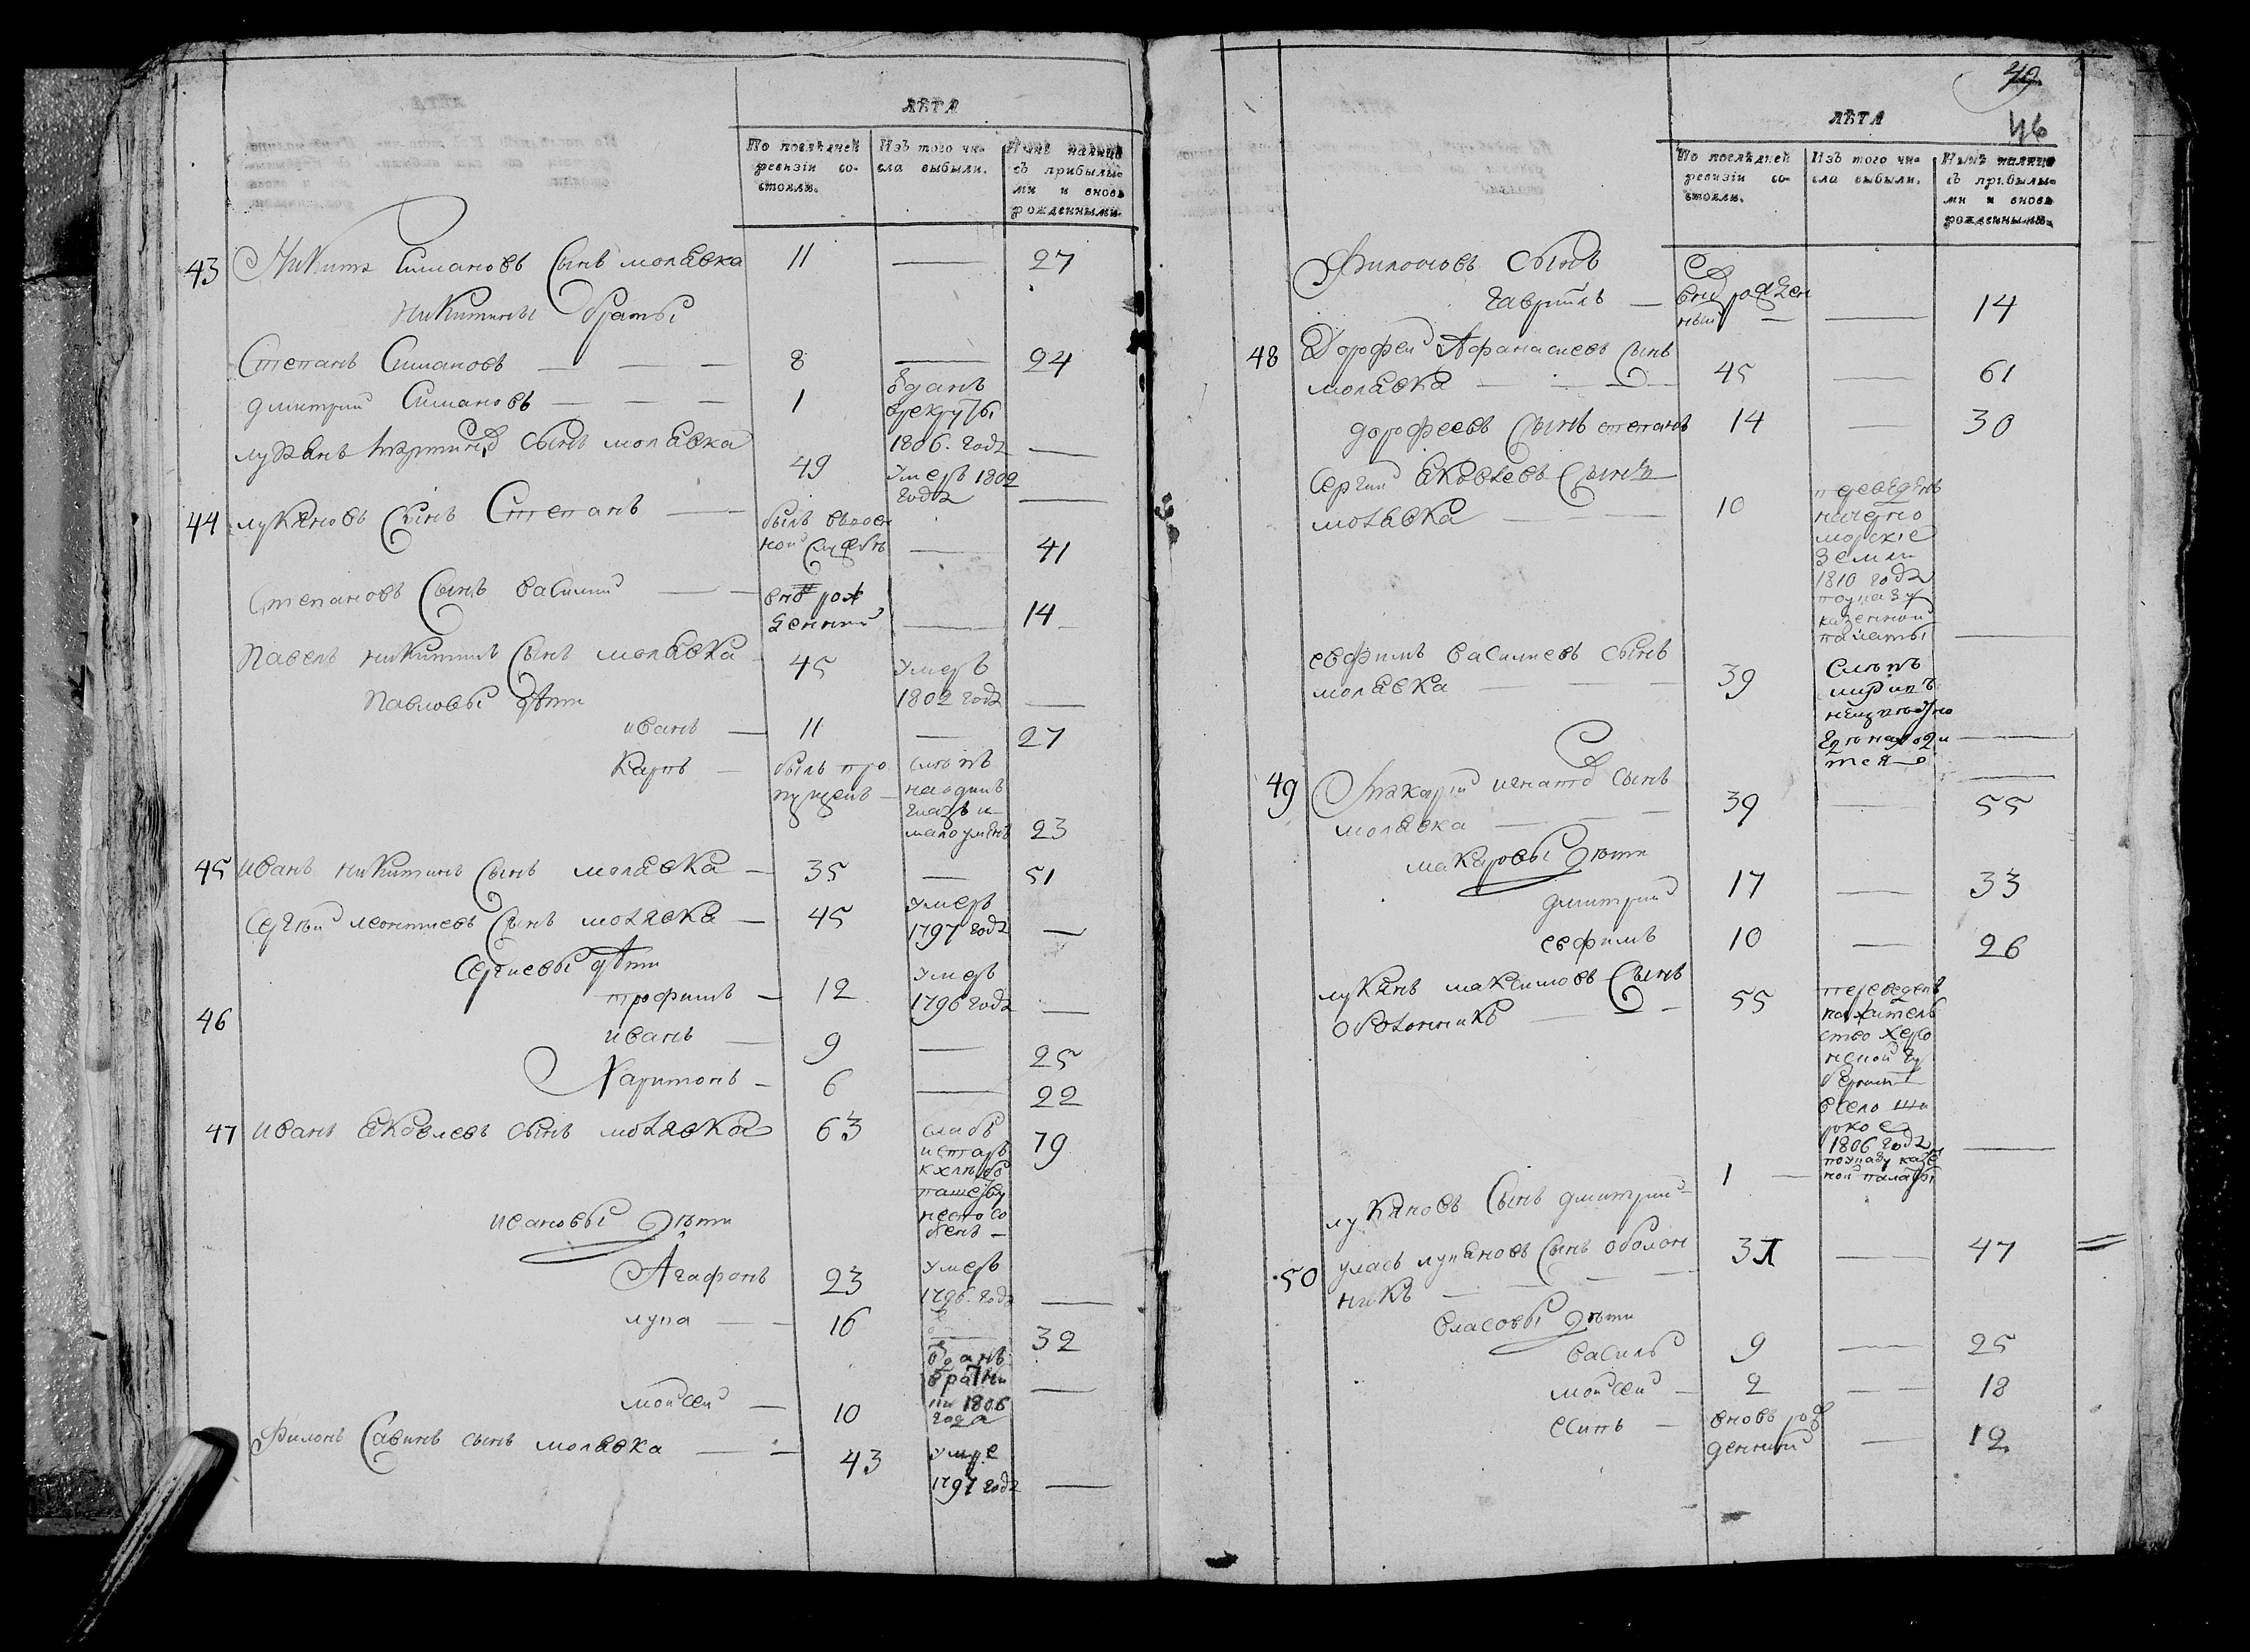 ЛѢТА
По послѣдней ревизіи состояли.
Изъ того числа выбыли.
Нынѣ налицо съ прибылыми и вновь рожденными.
43 Никита Симановъ сынъ молявка 11 — 27
Никитины братьѣ
Степанъ Симановъ — — — 8 — 24
дмитрий Симановъ — — — 1 зданъ
врекруты
1806. года —
лукянъ мартинов сынъ молявка 49 умеръ 1802
года —
44 лукяновъ сынъ Степанъ — былъ ввоен
ной службѣ — 41
степановъ сынъ василий — — внов рож
денний — 14
Павелъ никитинъ сынъ молявка 45 умеръ
1802 года —
Павловы дѣти
иванъ — 11 — 27
Карпъ — былъ про слѣпъ
пущенъ — наодинъ
глазъ и
малоуменъ 23
45 иванъ никитинъ сынъ молявка — 35 — 51
Сергѣй леонтиевъ сынъ молявка — 45 умеръ
1797 года —
Сергиевы дѣти
трофимъ — 12 умеръ
1796 года —
46 иванъ — 9 — 25
Харитонъ — 6 — 22
47 иванъ яковлевъ сынъ молявка 63 слабъ
истаръ
кхлѣбо
пашеству
неспосо
бенъ — 79
ивановы дѣти
Агафонъ 23 умеръ
1796. года —
лупа — — 16 — 32
мойсей — 10 зданъ
вратни
ки 1806
года —
Филонъ Савинъ сынъ молявка — — 43 умре
1797 года —
49
46
ЛѢТА
По послѣдней ревизіи состояли.
Изъ того числа выбыли.
Нынѣ налицо съ прибылыми и вновь рожденными.
Филоновъ сынъ
гаврилъ — внов рожден
ный — — 14
48 Дорофей Афанасиевъ сынъ
молявка — — — 45 — 61
дорофеевъ сынъ степанъ 14 — 30
Сергий яковлевъ сынъ
молявка — — 10 переведенъ
начерно
морскіе
земли
1810 года
поуказу
казенной
палаты —
евфимъ василиевъ сынъ
молявка — — — 39 слѣпъ
—
49 макарий игнатов сынъ
молявка — — — 39 — 55
макаровы дѣти
дмитрий 17 — 33
евфимъ 10 — 26
лукянъ максимовъ сынъ
оболонникъ — — — 55 переведенъ
нажитель
ство херсо
нской гу
берни
всело ши
рокое
1806 года
поуказу казе
ной палаты —
лукяновъ сынъ дмитрий — 1 —
50 уласъ лукяновъ сынъ оболон
никъ — — — — 47
власовы дѣти
василь 9 — 25
мойсей — 2 — — 18
есипъ — вновь рож
денний — 12